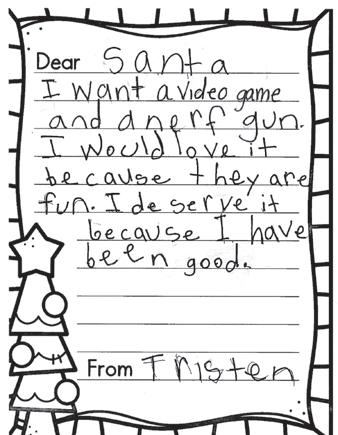 Dear Santa
I want a video game
and a nerf gun.
I would love it
because they are
fun. I deserve it
because I have
been good.
From Tristen